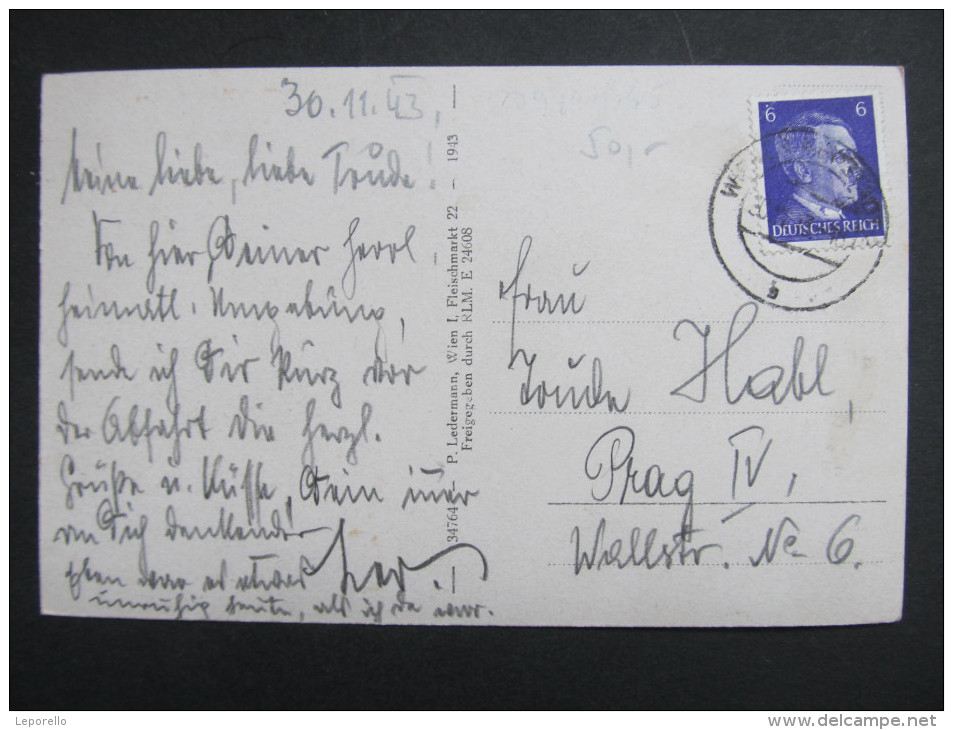 30.11.43,
Meine liebe, liebe Trude!
Von hier, Deiner herrl.
heimatl. Umgebung,
sende ich Dir kurz vor
der Abfahrt die herzl.
Grüße u. Küsse, Dein immer
an Dich denkender
Eben war es etwas
unruhig heute, als ich da war.
34764 - P. Ledermann, Wien I, Fleischmarkt 22 - 1943
Freigegeben durch RLM. E 24608
50,-
6 6
DEUTSCHES REICH
b
Frau
Trude Habl,
Prag IV,
Wallstr. No 6.
Leporello
www.delcampe.net